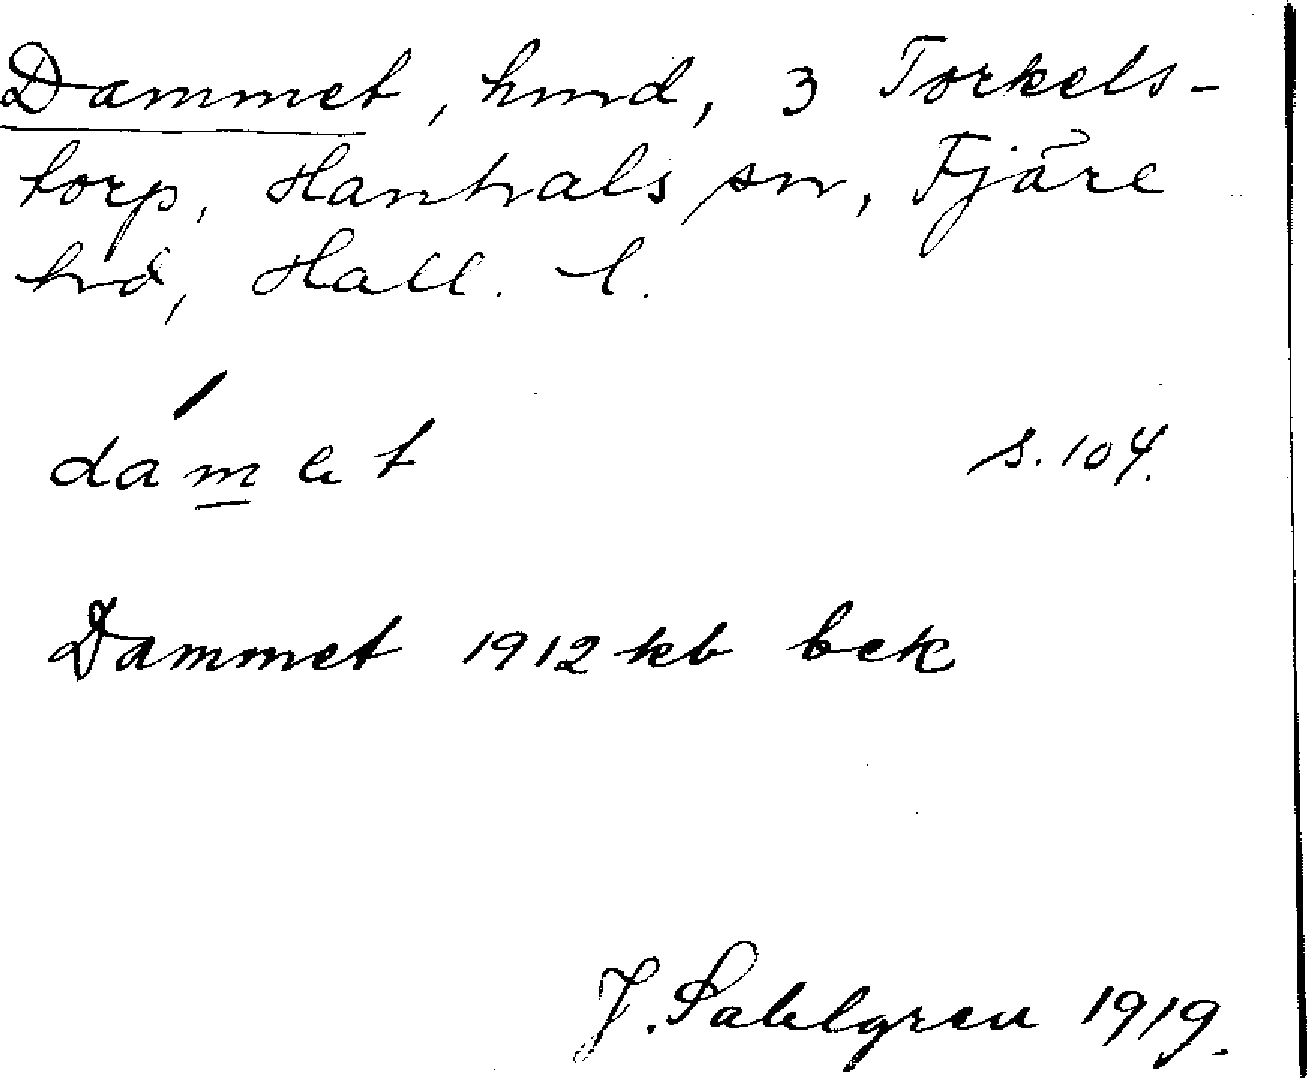 Dammet, hmd, 3 Torkels-
torp, Hanhals sn, Fjäre
hd, Hall. l.
dámet s. 104.
Dammet 1912 kb bek
J. Sahlgren 1919.